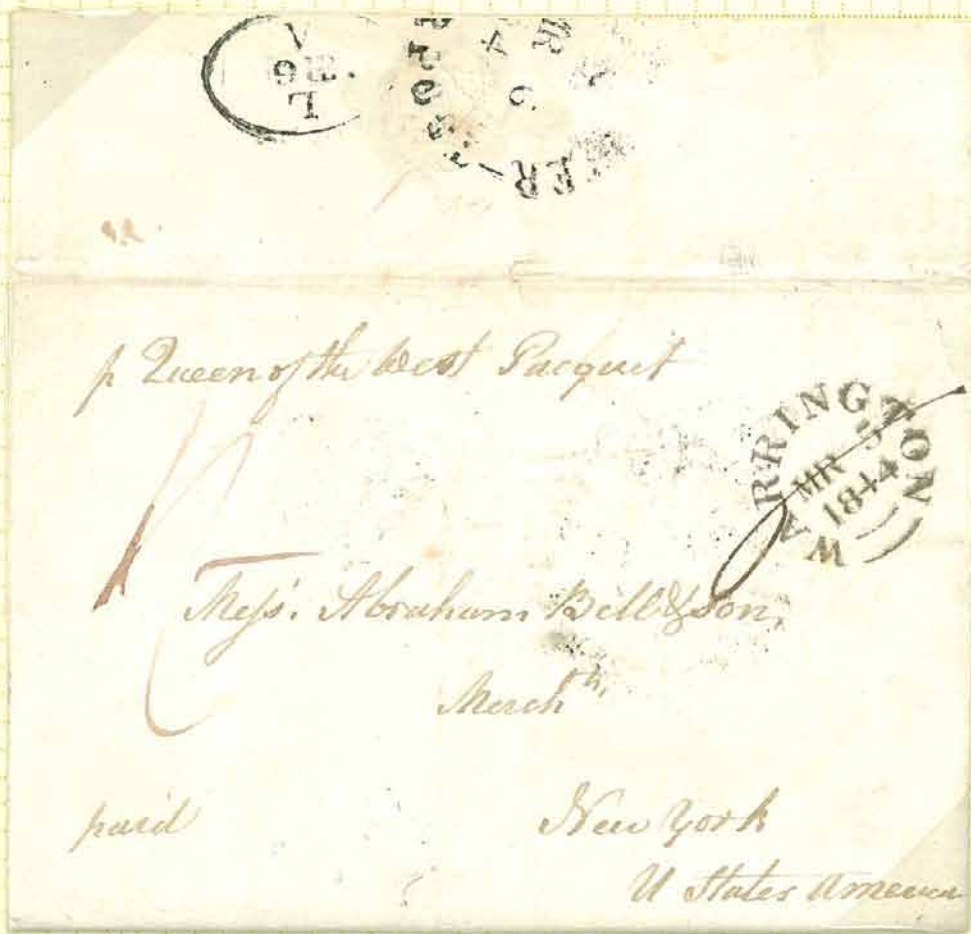 p Queen of the West Pacquet
WARRINGTON
MR 5
1844
1/-
Mess. Abraham Bell & Son,
Merchts,
paid
New York
U States America